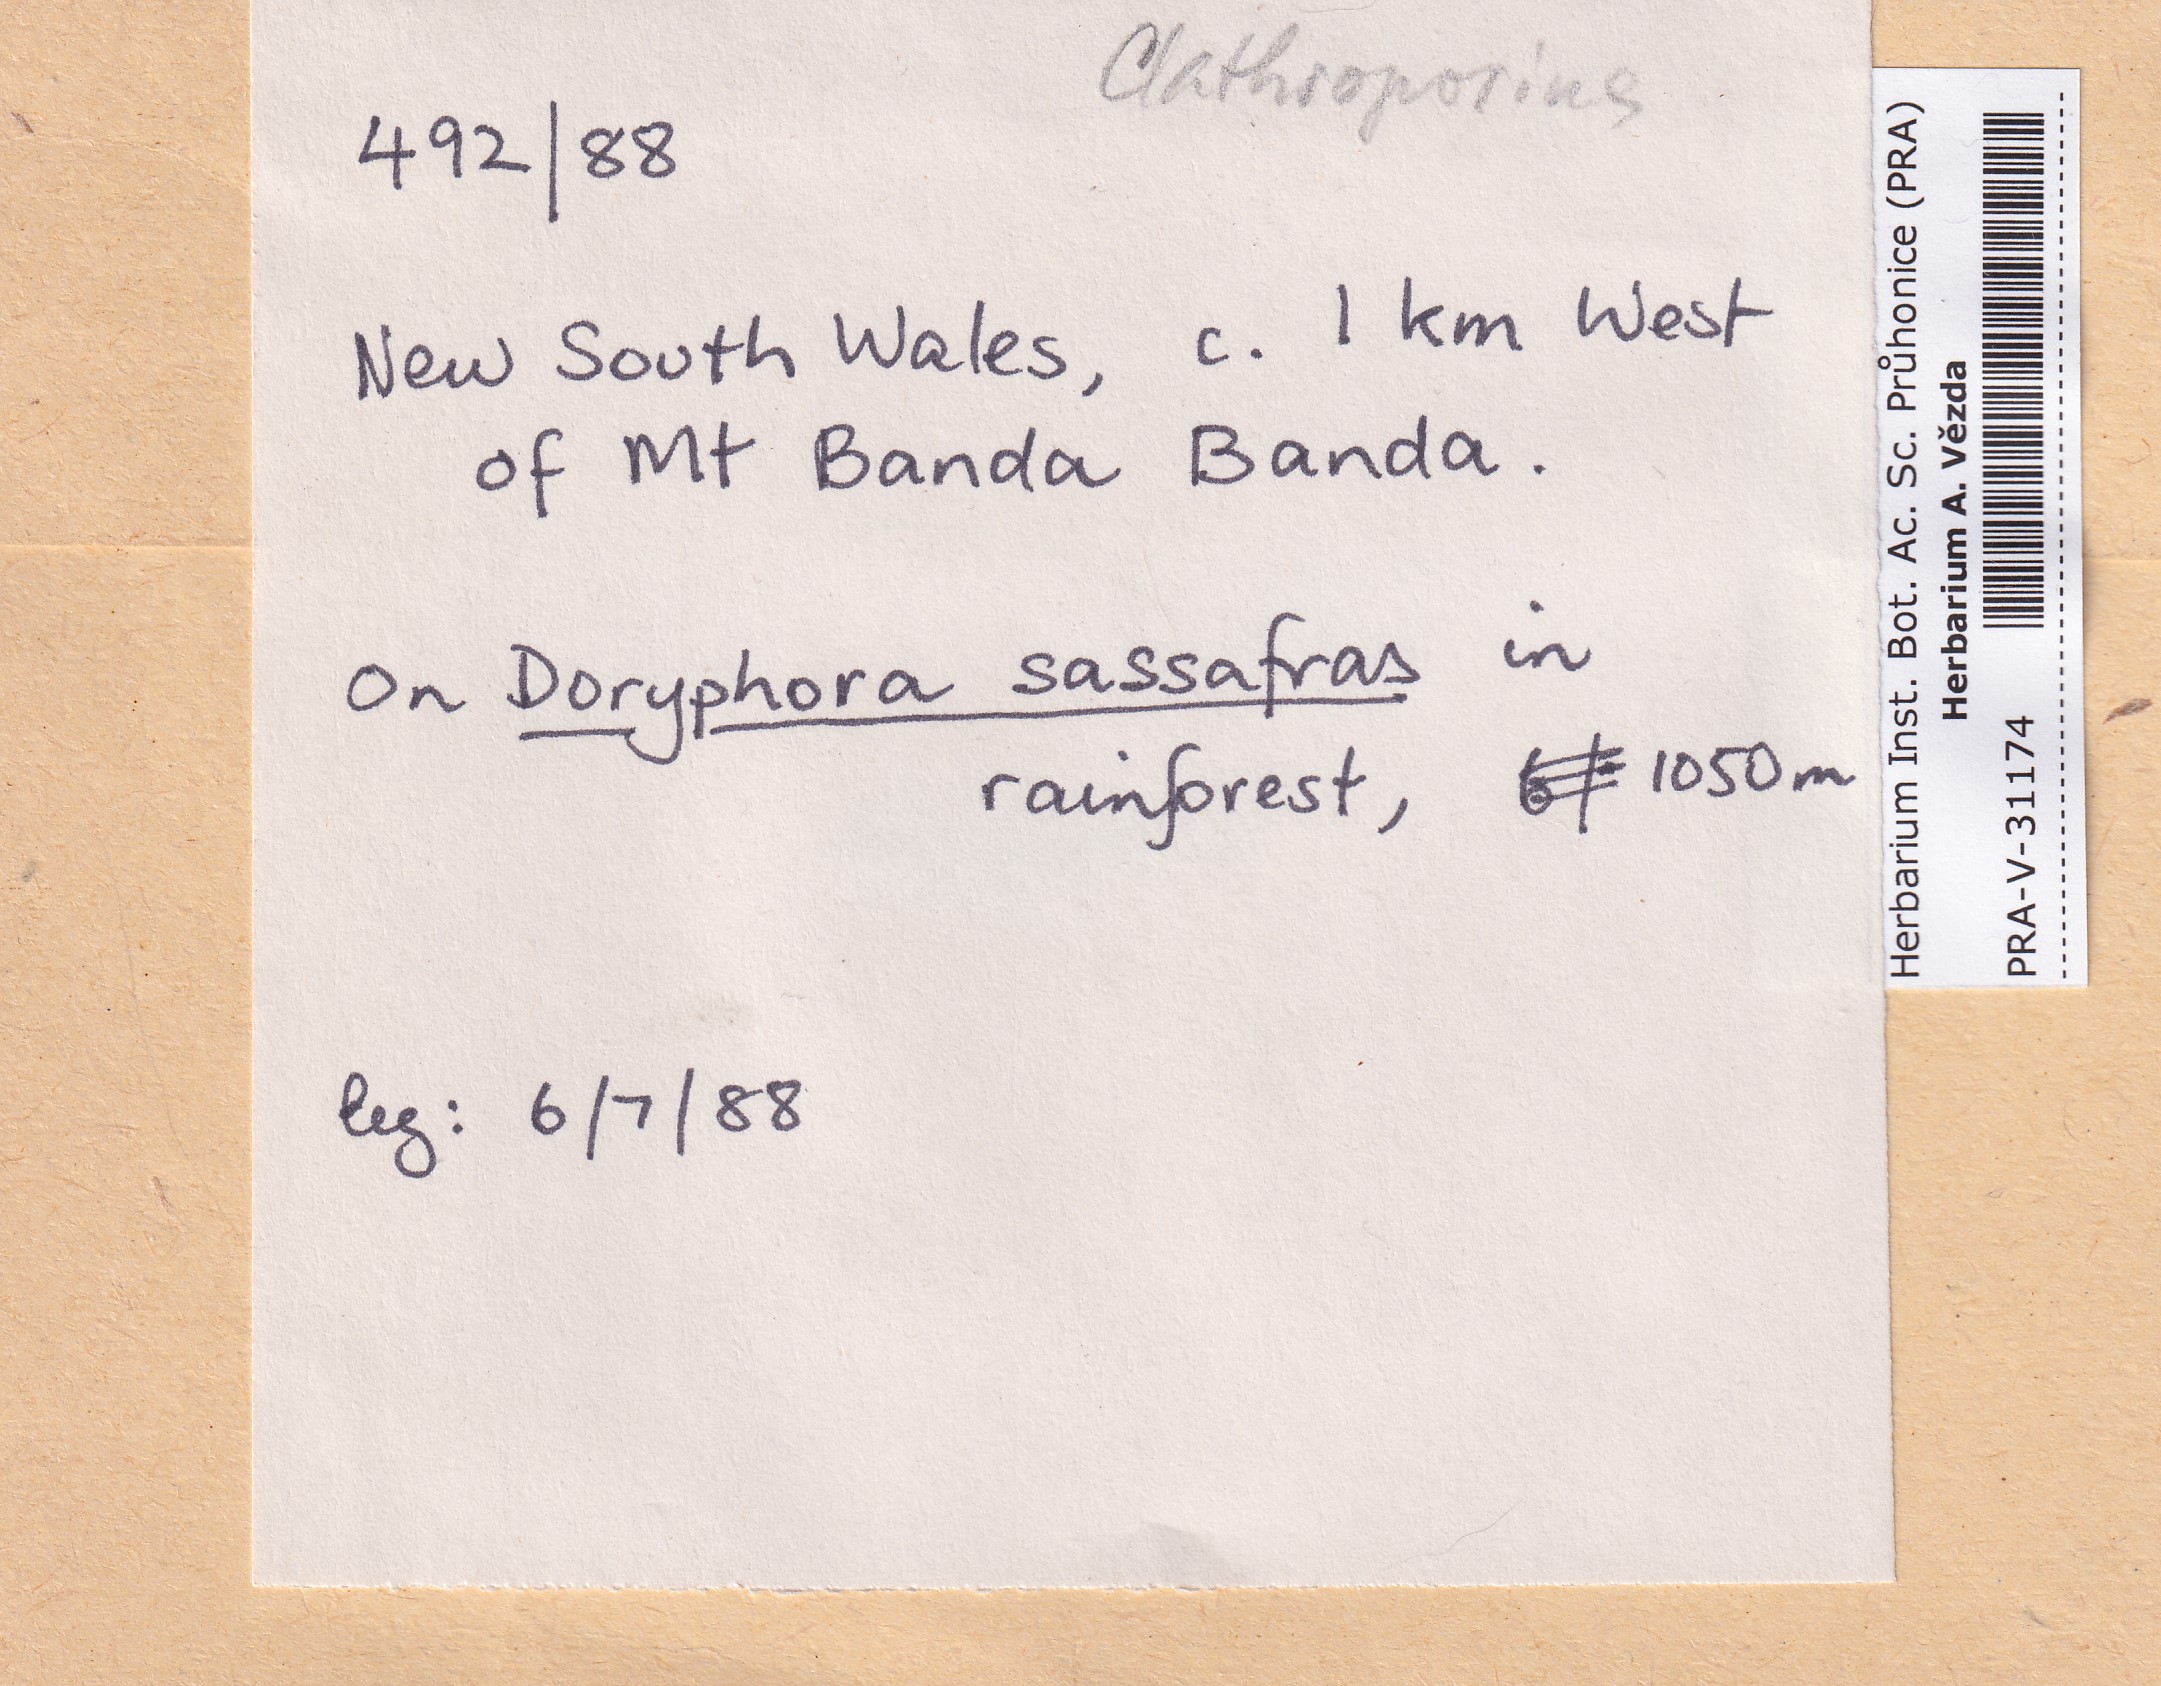 Clathroporina
492/88
New South Wales, c. 1 km West
of Mt Banda Banda.
On Doryphora sassafras in
rainforest, 1050m
leg: 6/7/88
Herbarium Inst. Bot. Ac. Sc. Průhonice (PRA)
Herbarium A. Vězda
PRA-V-31174